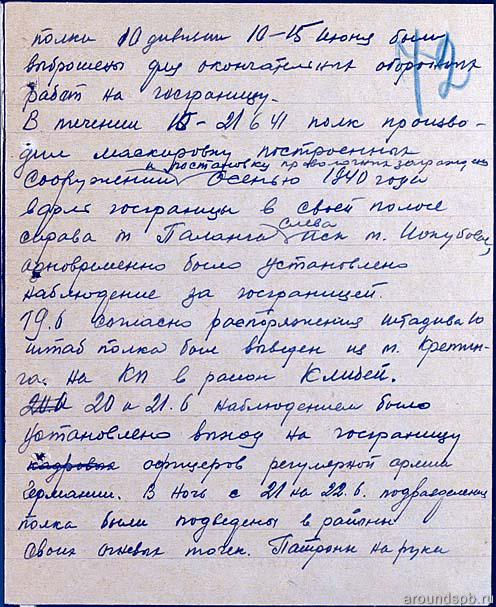 72
полки 10 дивизии 10-15 июня были
выброшены для окончательных оборонных
работ на госграницу.
В течении 15-21 6 41 полк произво-
дил маскировку построенных
и постановку проволочных заграждений
сооружений осенью 1940 года
вдоль госграницы в своей полосе
справа м Паланга слева иск м.
одновременно было установлено
наблюдение за госграницей.
19.6 согласно распоряжения штадива 10
штаб полка был выведен из м. Кретин-
га на КП в район Клибей.
20 и 21.6 наблюдением было
установлено выход на госграницу
кадровых офицеров регулярной армии
Германии. В ночь с 21 на 22.6. подразделения
полка были подведены в районы
своих огневых точек. Патроны на руки
aroundspb.ru